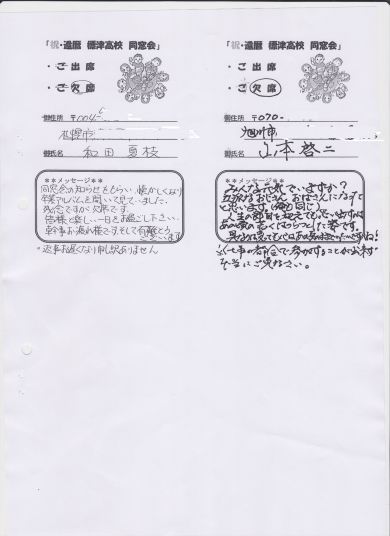 「祝・還暦 標津高校 同窓会」
・ご出席
・ご欠席
御住所 〒004-
札幌市
御氏名 和田 夏枝
**メッセージ**
同窓会の知らせをもらい、懐かしくなり
卒業アルバムを開いて見ていました。
残念ですが欠席です。
皆様と楽しい一日をお過ごし下さい。
幹事お疲れ様です。そして有難とう
ございます
*返事お遅くなり申し訳ありません
「祝・還暦 標津高校 同窓会」
・ご出席
・ご欠席
御住所 〒070-
旭川市
御氏名 山本 啓二
**メッセージ**
みんな元気でいますか?
立派なおじさん おばさんになって
と思います。(俺も同じ)
人生の節目を迎えて
あの頃の
仕事の都合で参加することが出来ず
本当にごめんなさい。